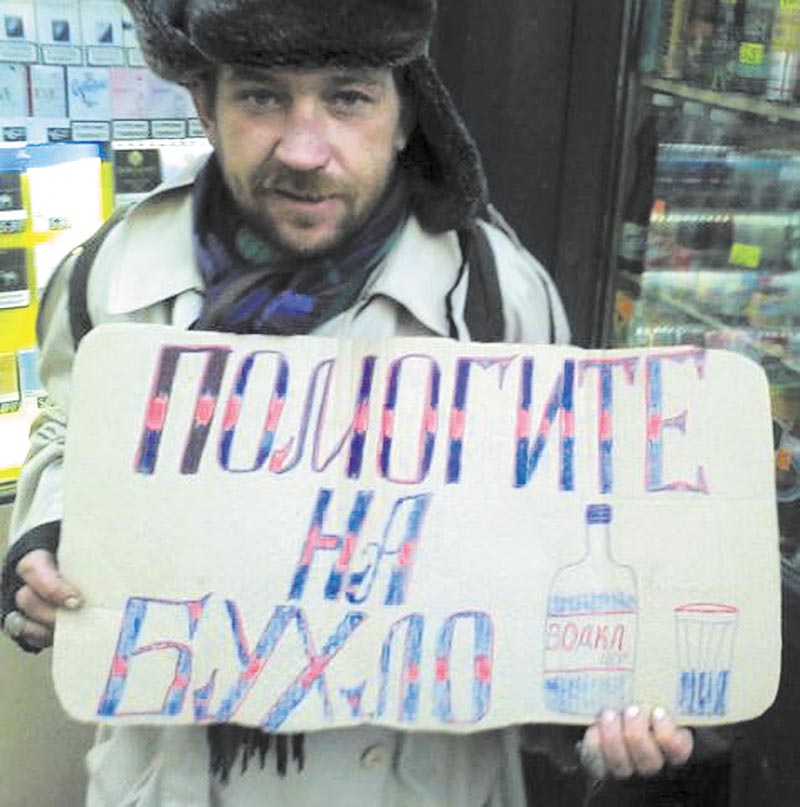 ПОМОГИТЕ
НА
БУХЛО
ВОДКА